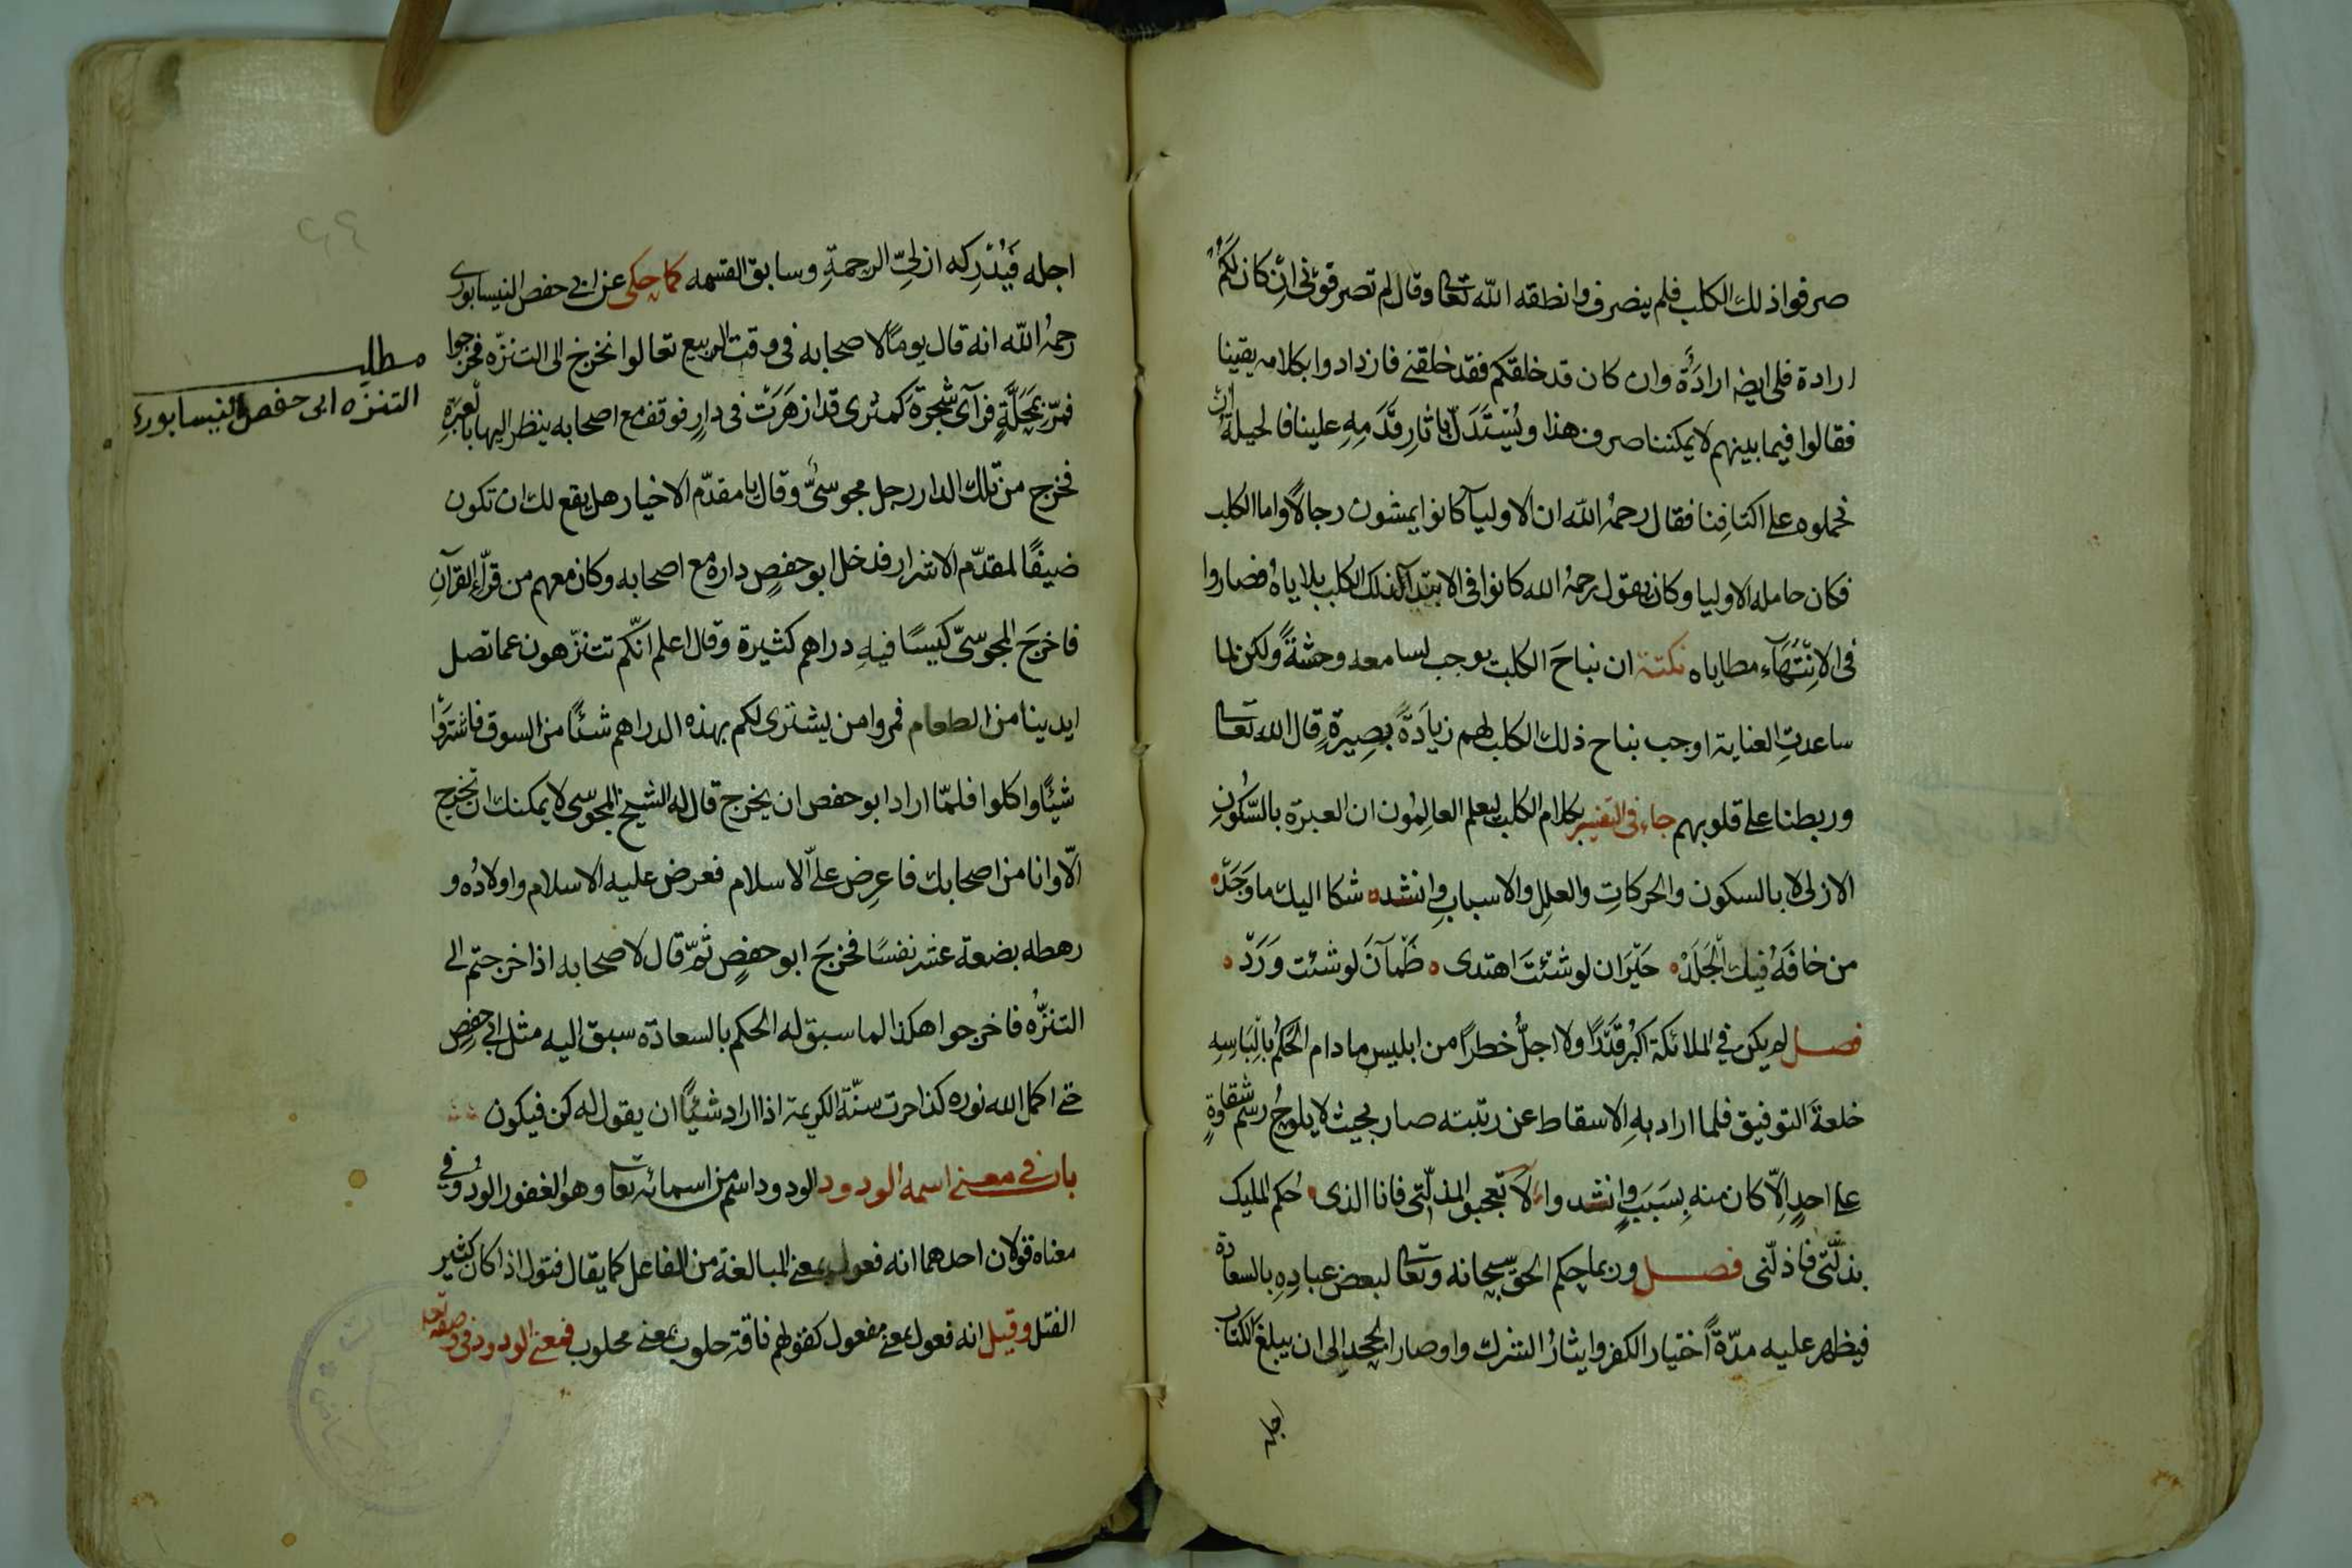 صرفوا ذلك الكلب فلم ينصرف وانطقه الله تعالى وقال لم تصرفونى ان كان لكم
ارادة فلى ايضا ارادة وان كان قد خلقكم فقد خلقنى فازدادوا بكلامه يقينا
فقالوا فيما بينهم لا يمكننا صرف هذا ويستدل باثار قدمه علينا فالحيلة ان
نحملوه على اكتافنا فقال رحمه الله ان الاوليآ كانوا يمشون رجالا واما الكلب
فكان حامله الاوليا وكان يقول رحمه الله كانوا فى الابتدآ لذلك الكلب بلاياه فصاروا
فى الانتهآء مطاياه نكتة ان نباح الكلب يوجب لسامعه وحشة ولكن لما
ساعدت العناية اوجب نباح ذلك الكلب لهم زيادة بصيرة قال الله تعالى
وربطنا على قلوبهم جاء فى التفسير بكلام الكلب ليعلم العالمون ان العبرة بالسكون
الازلى لا بالسكون والحركات والعلل والاسباب وانشد شكا اليك ما وجد
من خافه فيك الجلد حيران لو شئت اهتدى ظمآن لو شئت ورد
فصل لم يكن في الملائكة اكبر قدرا ولا اجل خطرا من ابليس مادام الحكم بالباسه
خلعة التوفيق فلما اراد به الاسقاط عن رتبته صار بحيث لا يلوح رسم شقاوة
على احد الا كان منه بسبب وانشدوا لا تعجبوا لمذلتى فانا الذى حكم المليك
بذلتى فاذلنى فصل وربما حكم الحق سبحانه وتعالى لبعض عباده بالسعادة
فيظهر عليه مدة اختيار الكفر وايثار الشرك واوصار الجحد الى ان يبلغ الكتاب
اجله
اجله فيدركه ازلى الرحمة وسابق القسمه كما حكى عن ابى حفص النيسابورى
رحمه الله انه قال يوما لاصحابه فى وقت الربيع تعالوا نخرج الى التنزه فخرجوا
فمر بمحلة فرآى شجرة كمثرى قد ازهرت فى دار فوقف مع اصحابه ينظر اليها بالعبرة
فخرج من تلك الدار رجل مجوسى وقال يا مقدم الاخيار هل يقع لك ان تكون
ضيفا لمقدم الاشرار فدخل ابو حفص داره مع اصحابه وكان معهم من قرآء القرآن
فاخرج المجوسى كيسا فيه دراهم كثيرة وقال اعلم انكم تتنزهون عما تصل
ايدينا من الطعام فمروا من يشترى لكم بهذه الدراهم شئا من السوق فاشتروا
شيئا واكلوا فلما اراد ابو حفص ان يخرج قال له الشيخ المجوسى لا يمكنك ان تخرج
الا وانا من اصحابك فاعرض على الاسلام فعرض عليه الاسلام واولاده و
رهطه بضعة عشر نفسا فخرج ابو حفص ثم قال لاصحابه اذا خرجتم الى
التنزه فاخرجوا هكذا لما سبق له الحكم بالسعادة سبق اليه مثل ابى حفص
حتى اكمل الله نوره كذا جرت سنة الكريمة اذا اراد شيئا ان يقول له كن فيكون
باب فى معنى اسمه الودود الودود اسم من اسمائه تعالى وهو الغفور الودود وفى
معناه قولان احدهما انه فعول بمعنى المبالغة من الفاعل كما يقال قتول اذا كان كثير
القتل وقيل انه فعول بمعنى مفعول كقولهم ناقة حلوب بمعنى محلوب فمعنى الودود فى وصفه تعالى
مطلب
التنزه ابى حفص النيسابورى